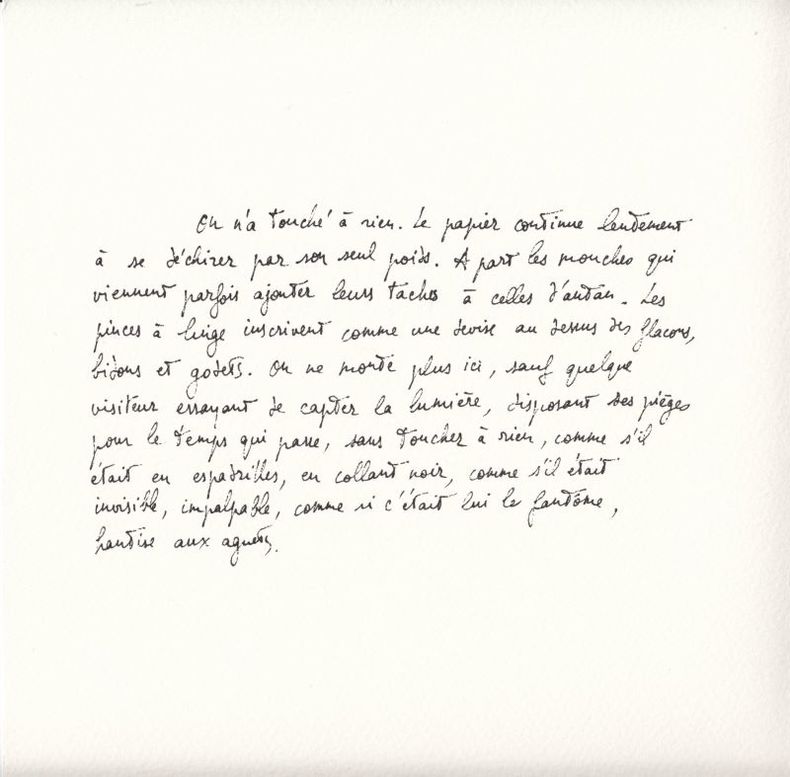 On n'a touché à rien. Le papier continue lentement
à se déchirer par son seul poids. A part les mouches qui
viennent parfois ajouter leurs taches à celles d'antan. Les
pinces à linge inscrivent comme une devise au dessus des flacons,
bidons et godets. On ne monte plus ici, sauf quelque
visiteur essayant de capter la lumière, disposant ses pièges
pour le temps qui passe, sans toucher à rien, comme s'il
était en espadrilles, en collant noir, comme s'il était
invisible, impalpable, comme si c'était lui le fantôme,
hantise aux aguets.